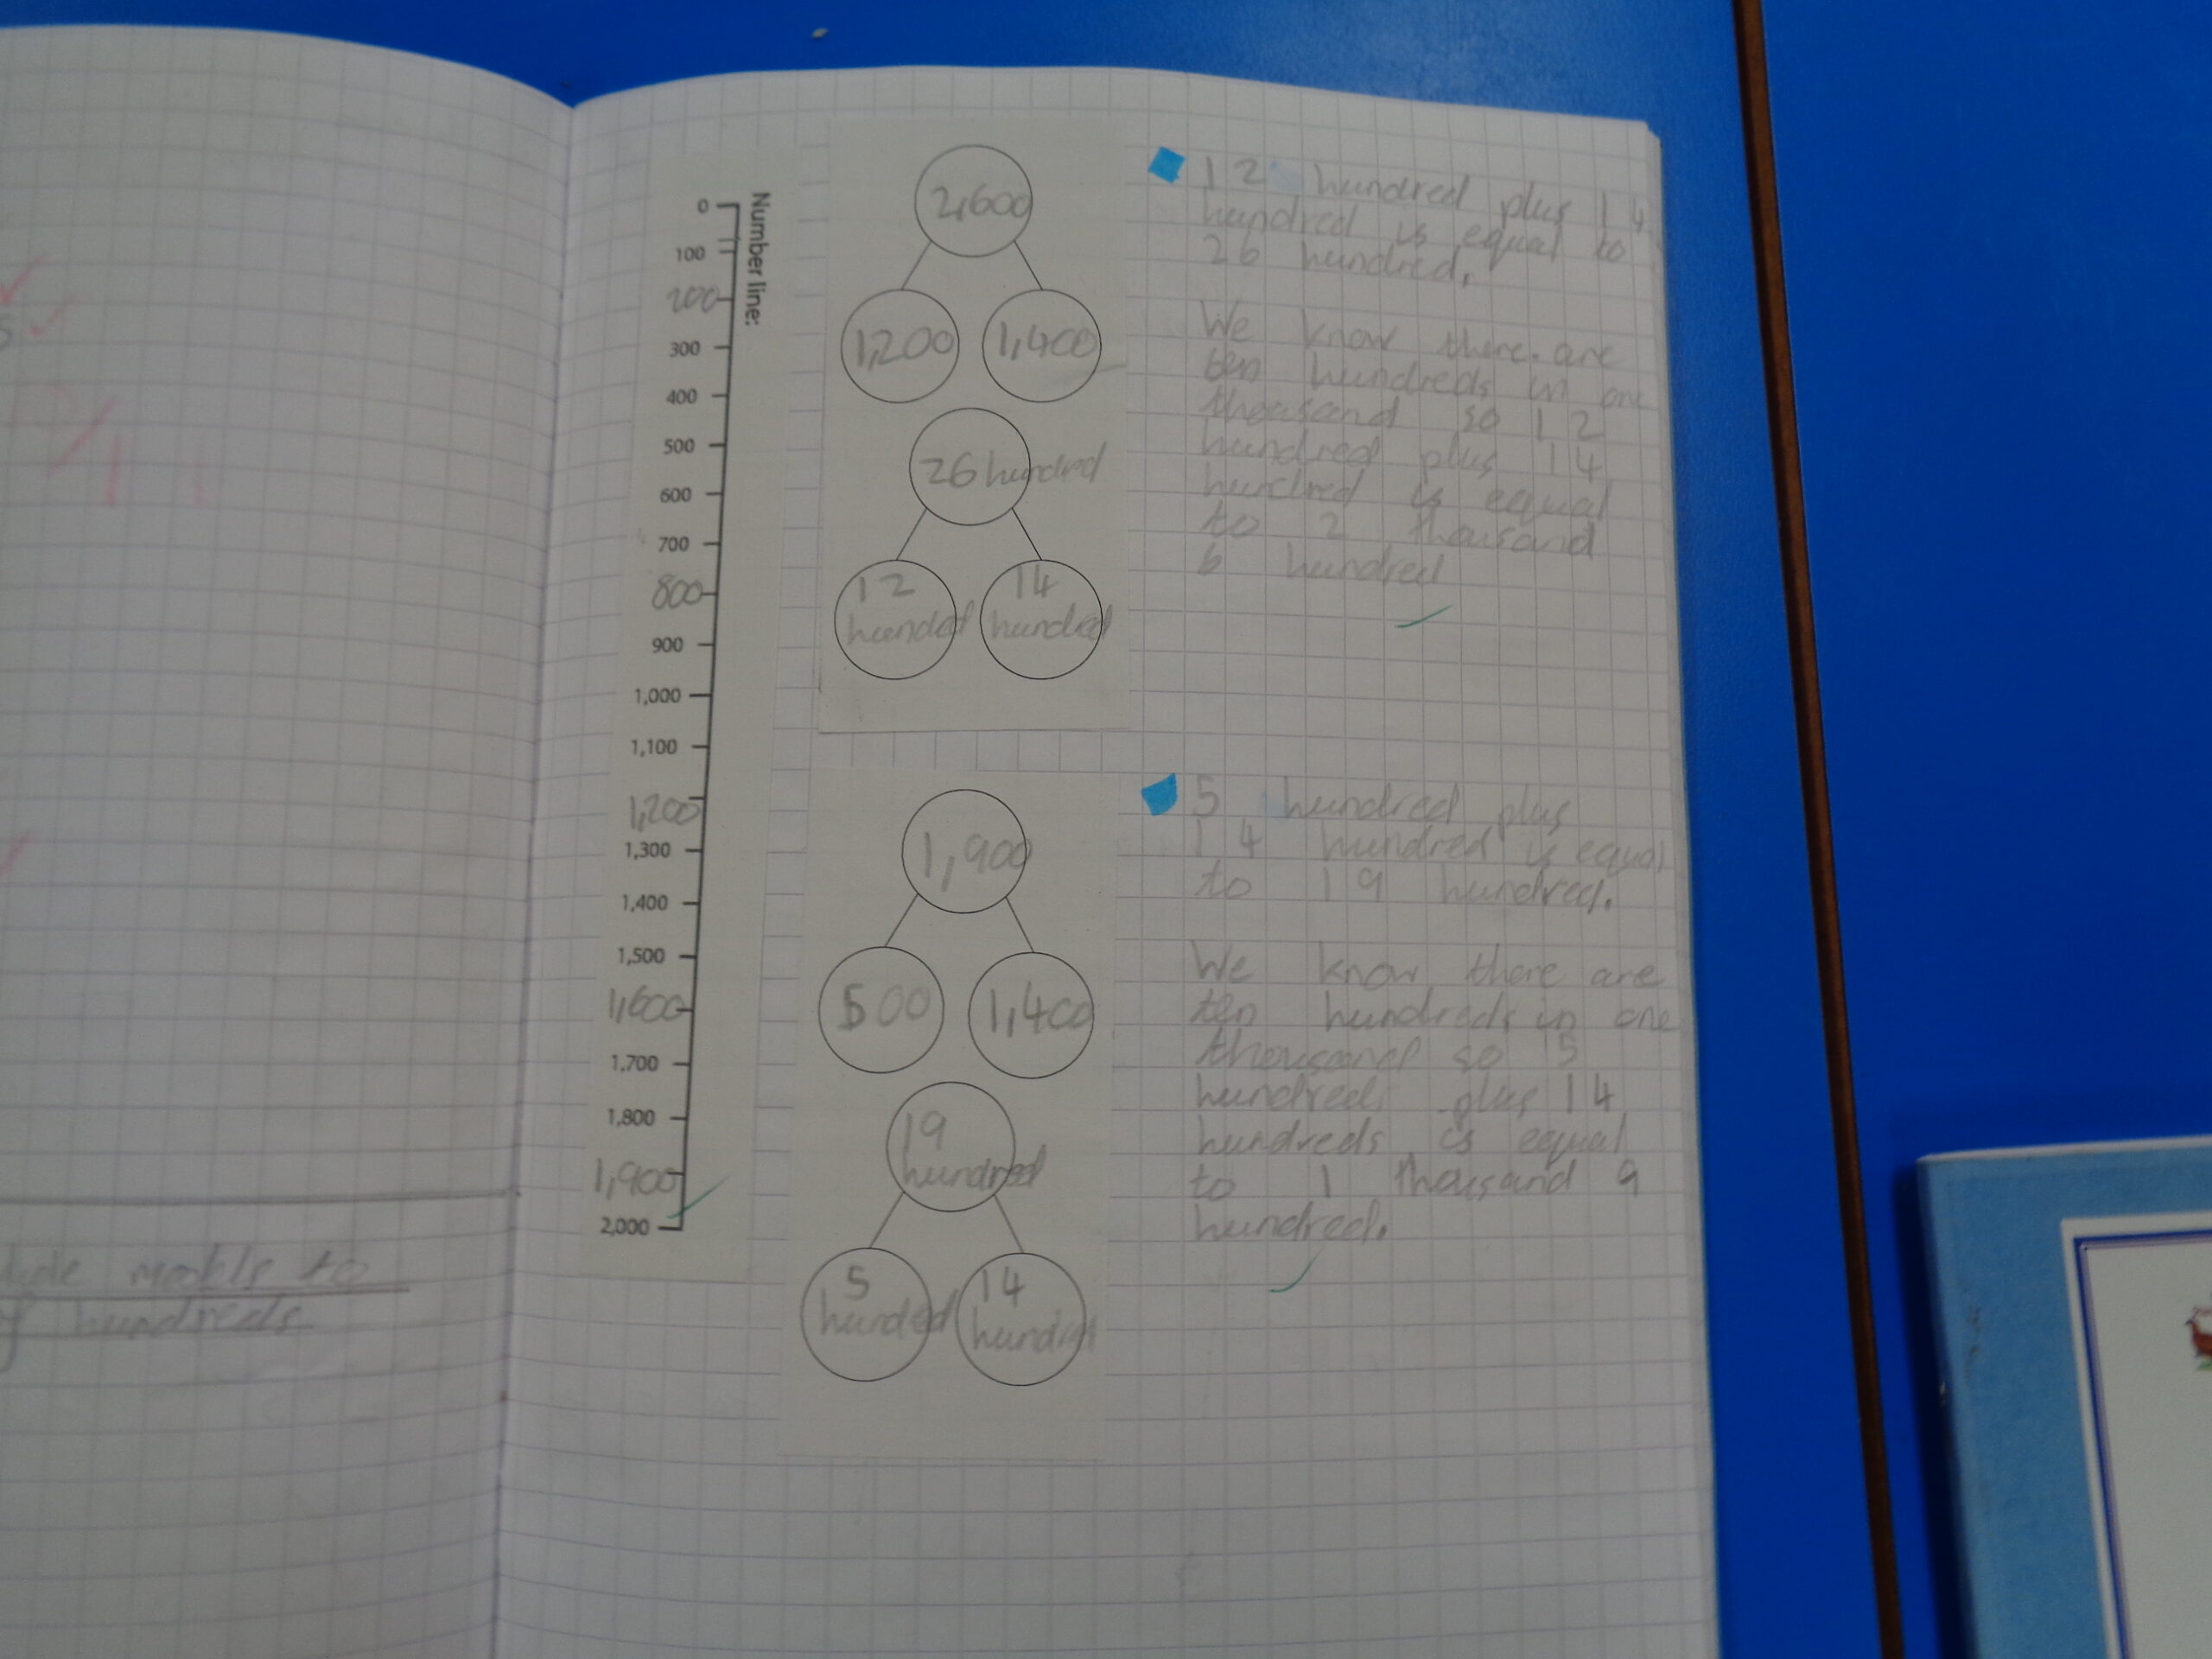 Number line:
0
100
200
300
400
500
600
700
800
900
1,000
1,100
1,200
1,300
1,400
1,500
1,600
1,700
1,800
1,900
2,000
2,600
1,200 1,400
26 hundred
12 14
hunded hundred
1,900
500 1,400
19
hundred
5 14
hunded hundred
12 hundred plus 14
hundred is equal to
26 hundred.
We know there are
ten hundreds in one
thousand so 12
hundred plus 14
hundred is equal
to 2 thousand
6 hundred
5 hundred plus
14 hundred is equal
to 19 hundred.
We know there are
ten hundreds in one
thousand so 5
hundreds plus 14
hundreds is equal
to 1 thousand 9
hundred.
models to
hundreds